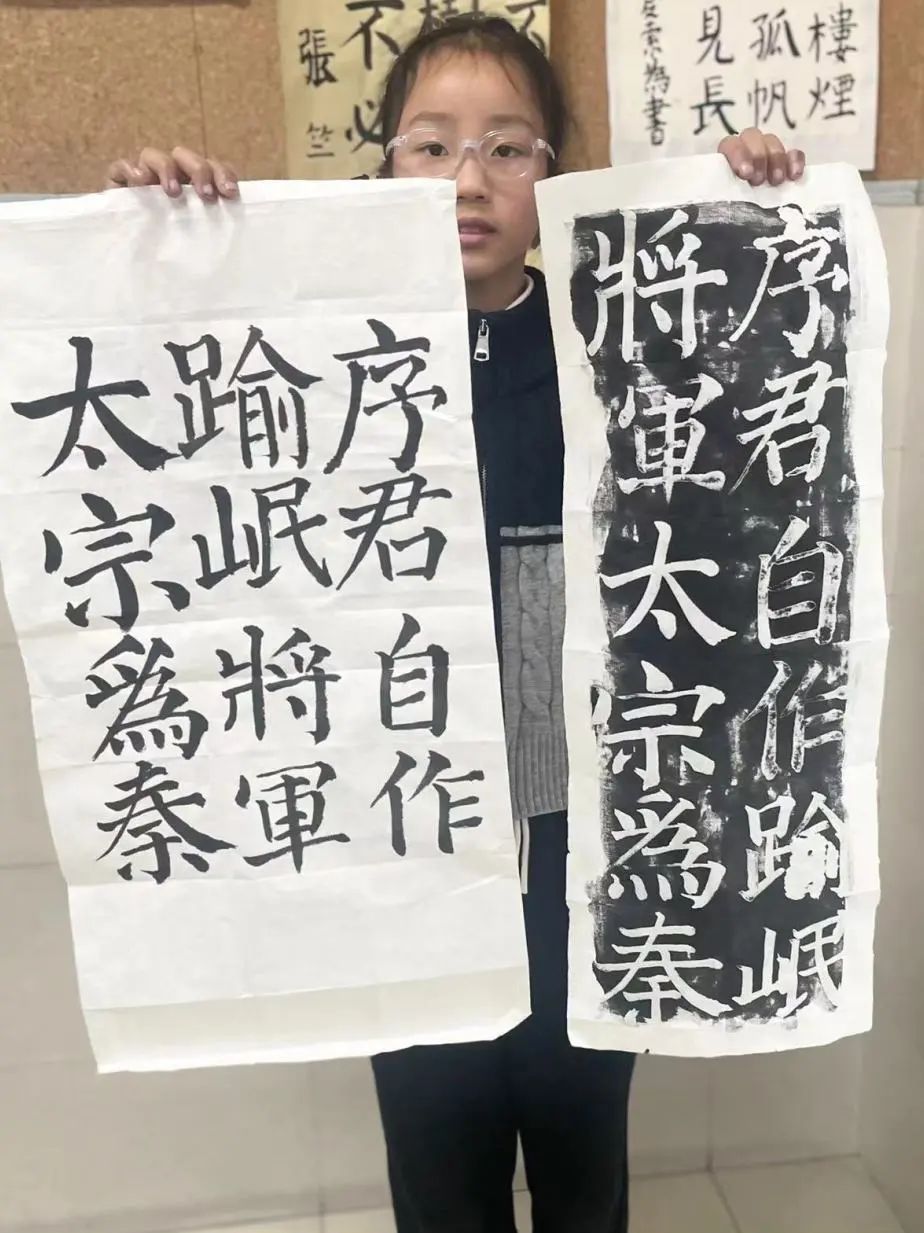 序君自作
踰岷將軍
太宗為秦
序君自作踰岷
將軍太宗為秦
不必
張竺
樓煙
孤帆
見長
為書